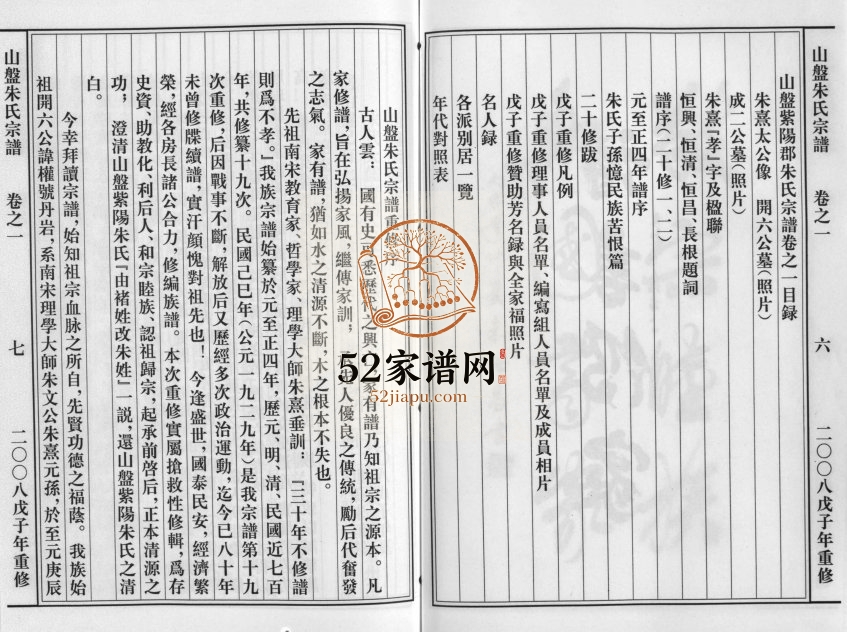 山盤朱氏宗譜
卷之一
六
二〇〇八戊子年重修
山盤紫陽郡朱氏宗譜卷之一目録
朱熹太公像 開六公墓(照片)
成二公墓(照片)
朱熹『孝』字及楹聯
恒興、恒清、恒昌、長根題詞
譜序(二十修一、二)
元至正四年譜序
朱氏子孫憶民族苦恨篇
二十修跋
戊子重修凡例
戊子重修理事人員名單、編寫組人員名單及成員相片
戊子重修贊助芳名録與全家福照片
名人録
各派别居一覽
年代對照表
山盤朱氏宗譜重修序
古人雲: 國有史 悉歷代之興 家有譜乃知祖宗之源本。凡
家修譜,旨在弘揚家風,繼傳家訓, 人優良之傳統,勵后代奮發
之志氣。家有譜,猶如水之清源不斷,木之根本不失也。
先祖南宋教育家、哲學家、理學大師朱熹垂訓: 『三十年不修譜
則爲不孝。』我族宗譜始纂於元至正四年,歷元、明、清、民國近七百
年,共修纂十九次。民國己巳年(公元一九二九年)是我宗譜第十九
次重修,后因戰事不斷,解放后又歷經多次政治運動,迄今已八十年
未曾修牒續譜,實汗顔愧對祖先也! 今逢盛世,國泰民安,經濟繁
榮,經各房長諸公合力,修編族譜。本次重修實屬搶救性修輯,爲存
史資、助教化、利后人、和宗睦族、認祖歸宗,起承前啓后,正本清源之
功, 澄清山盤紫陽朱氏『由褚姓改朱姓』一説,還山盤紫陽朱氏之清
白。
今幸拜讀宗譜,始知祖宗血脉之所自,先賢功德之福蔭。我族始
祖開六公諱權號丹岩,系南宋理學大師朱文公朱熹元孫,於至元庚辰
山盤朱氏宗譜
卷之一
七
二〇〇八戊子年重修
52家谱网
52jiapu.com